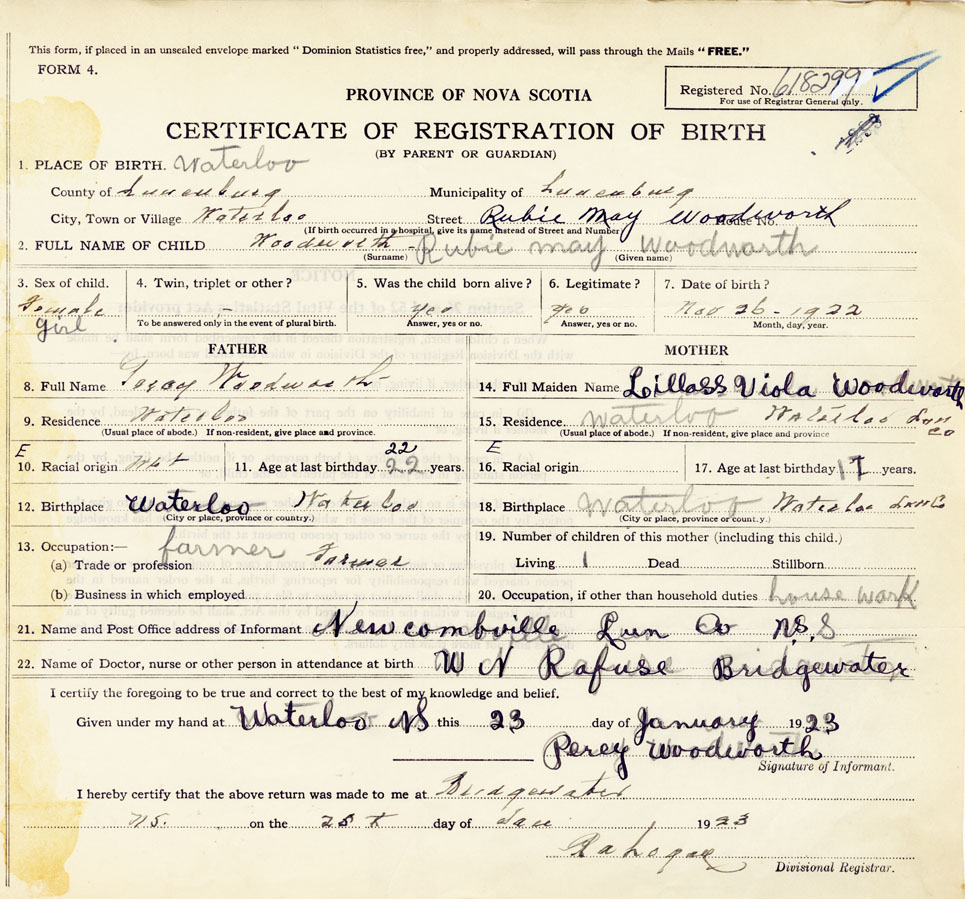 This form, if placed in an unsealed envelope marked "Dominion Statistics free," and properly addressed, will pass through the Mails "FREE."
FORM 4.
Registered No. 618299
For use of Registrar General only.
PROVINCE OF NOVA SCOTIA
CERTIFICATE OF REGISTRATION OF BIRTH
(BY PARENT OR GUARDIAN)
1. PLACE OF BIRTH. Waterloo
County of Lunenburg Municipality of Lunenburg
City, Town or Village Waterloo Street Rubie May Woodworth House No.
(If birth occurred in a hospital, give its name instead of Street and Number)
2. FULL NAME OF CHILD Woodworth - Rubie may Woodworth
(Surname) (Given name)
3. Sex of child. 4. Twin, triplet or other? 5. Was the child born alive? 6. Legitimate? 7. Date of birth?
Female - Yes Yes Nov 26 - 1922
girl To be answered only in the event of plural birth. Answer, yes or no. Answer, yes or no. Month, day, year.
FATHER MOTHER
8. Full Name Percy Woodworth 14. Full Maiden Name Lillass Viola Woodworth
9. Residence Waterloo 15. Residence waterloo Waterloo Lun Co
(Usual place of abode.) If non-resident, give place and province. (Usual place of abode.) If non-resident, give place and province
E 22 E
10. Racial origin 11. Age at last birthday 22 years. 16. Racial origin 17. Age at last birthday 17 years.
12. Birthplace Waterloo Waterloo 18. Birthplace Waterloo Waterloo Lun Co
(City or place, province or country.) (City or place, province or country.)
13. Occupation:— farmer 19. Number of children of this mother (including this child.)
(a) Trade or profession Farmer Living 1 Dead Stillborn
(b) Business in which employed 20. Occupation, if other than household duties house work
21. Name and Post Office address of Informant Newcombville Lun Co N.S. S
22. Name of Doctor, nurse or other person in attendance at birth W N Rafuse Bridgewater
I certify the foregoing to be true and correct to the best of my knowledge and belief.
Given under my hand at Waterloo NS this 23 day of January 1923
Percy Woodworth
Signature of Informant.
I hereby certify that the above return was made to me at Bridgewater
N.S. on the 25th day of Jan 1923
Divisional Registrar.